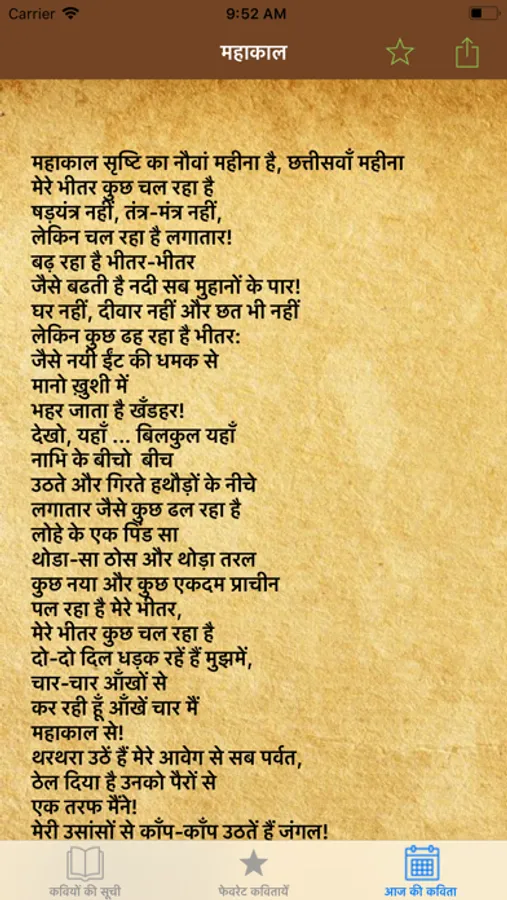 Carrier 9:52 AM
महाकाल
महाकाल सृष्टि का नौवां महीना है, छत्तीसवाँ महीना
मेरे भीतर कुछ चल रहा है
षड़यंत्र नहीं, तंत्र-मंत्र नहीं,
लेकिन चल रहा है लगातार!
बढ़ रहा है भीतर-भीतर
जैसे बढती है नदी सब मुहानों के पार!
घर नहीं, दीवार नहीं और छत भी नहीं
लेकिन कुछ ढह रहा है भीतर:
जैसे नयी ईंट की धमक से
मानो ख़ुशी में
भहर जाता है खँडहर!
देखो, यहाँ ... बिलकुल यहाँ
नाभि के बीचो बीच
उठते और गिरते हथौड़ों के नीचे
लगातार जैसे कुछ ढल रहा है
लोहे के एक पिंड सा
थोडा-सा ठोस और थोड़ा तरल
कुछ नया और कुछ एकदम प्राचीन
पल रहा है मेरे भीतर,
मेरे भीतर कुछ चल रहा है
दो-दो दिल धड़क रहें हैं मुझमें,
चार-चार आँखों से
कर रही हूँ आँखें चार मैं
महाकाल से!
थरथरा उठें हैं मेरे आवेग से सब पर्वत,
ठेल दिया है उनको पैरों से
एक तरफ मैंने!
मेरी उसांसों से काँप-काँप उठतें हैं जंगल!
कवियों की सूची फेवरेट कवितायें आज की कविता